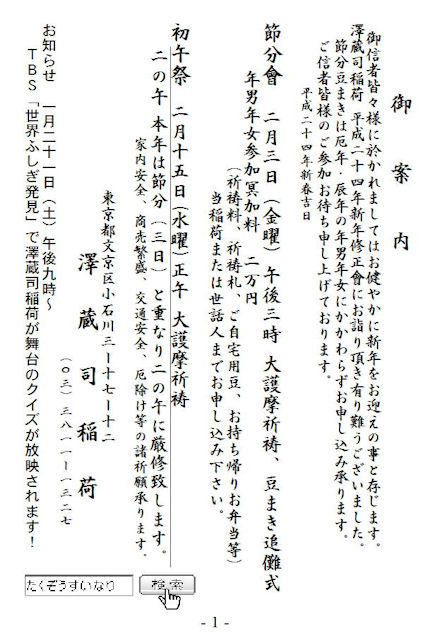 御案内
御信者皆々様に於かれましてはお健やかに新年をお迎えの事と存じます。
澤蔵司稲荷 平成二十四年新年修正會にお詣り頂き有り難うございました。
節分豆まきは厄年・辰年の年男年女にかかわらずお申し込み承ります。
ご信者皆様のご参加お待ち申し上げております。
平成二十四年新春吉日
節分會 二月三日（金曜）午後三時 大護摩祈祷、豆まき追儺式
年男年女参加冥加料 二万円
（祈祷料、祈祷札、ご自宅用豆、お持ち帰りお弁当等）
当稲荷または世話人までお申し込み下さい。
初午祭 二月十五日（水曜）正午 大護摩祈祷
二の午 本年は節分（三日）と重なり二の午に厳修致します。
家内安全、商売繁盛、交通安全、厄除け等の諸祈願承ります。
東京都文京区小石川三ー十七ー十二
澤蔵司稲荷
（〇三）三八一一ー一三二七
お知らせ 一月二十一日（土）午後九時～
TBS「世界ふしぎ発見」で澤蔵司稲荷が舞台のクイズが放映されます！
たくぞうすいなり 検索
- 1 -